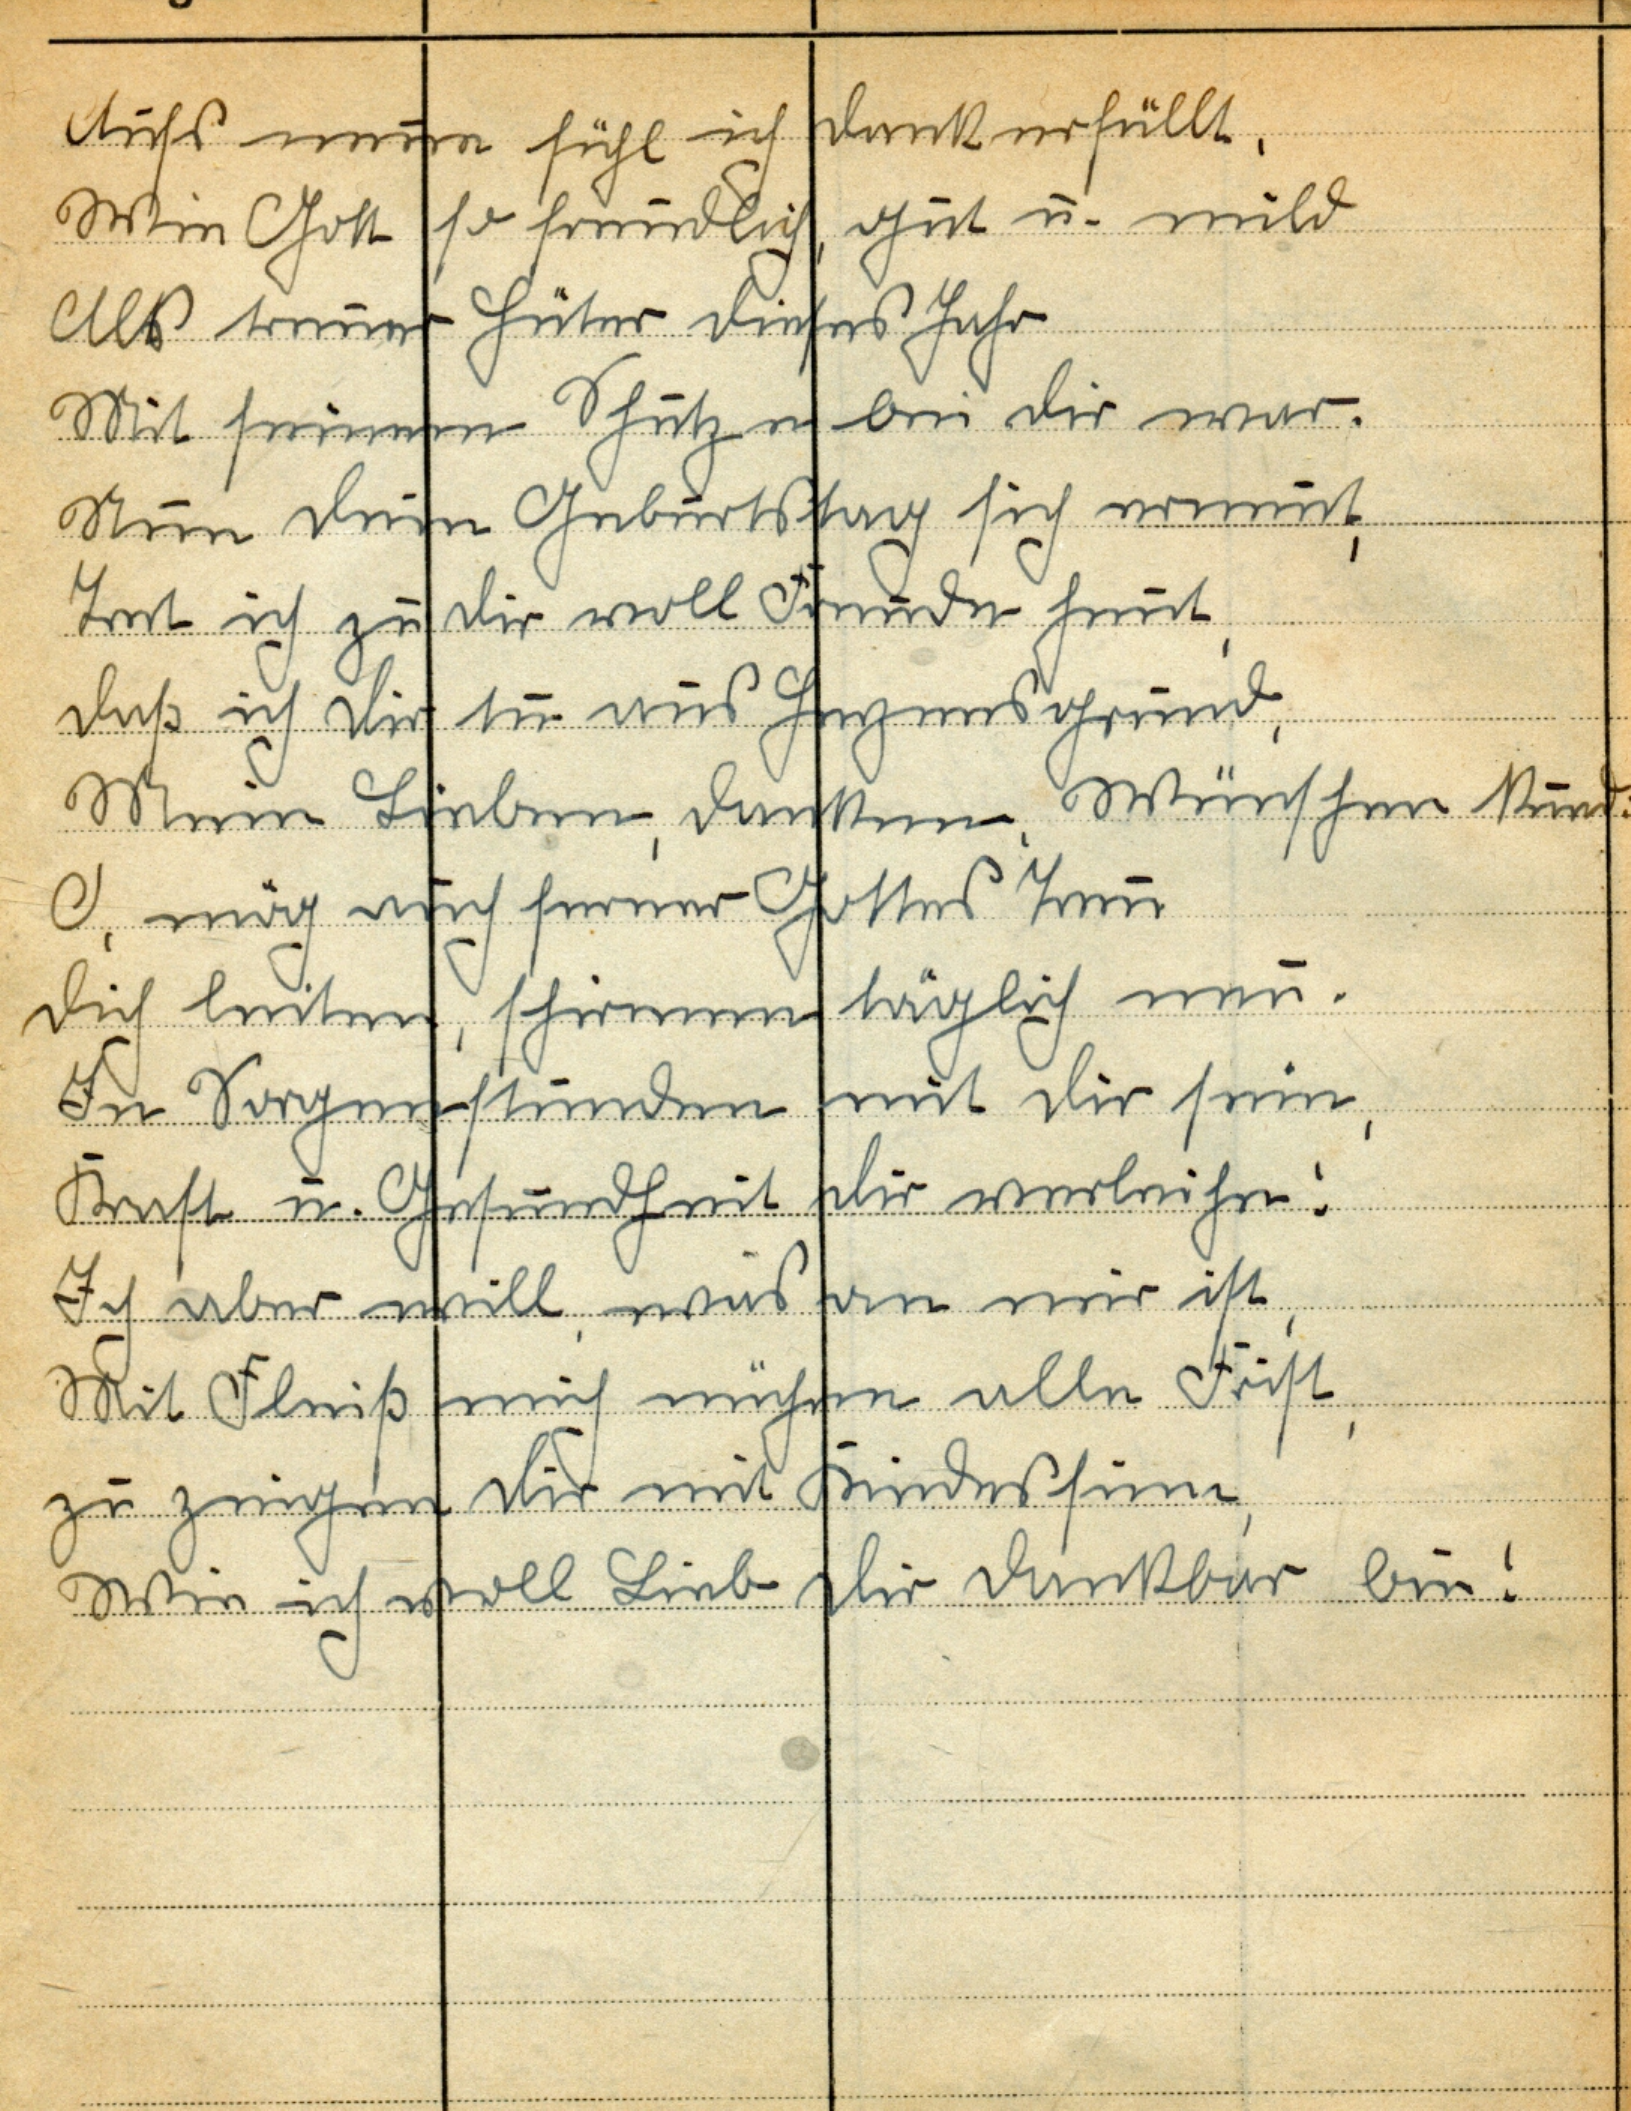 Aufs neue fühl ich dankerfüllt,
Wie Gott so freundlich, gut u. mild
Als treuer Hüter dieses Jahr
Mit seinem Schutze bei dir war.
Nun dein Geburtstag sich erneut,
Tret ich zu dir voll Freude heut,
daß ich dir tu aus Herzensgrund,
Mein Lieben, danken, Wünschen kund:
O, mög auch ferner Gottes Treu
dich leiten, schirmen täglich neu.
In Sorgenstunden mit dir sein,
Kraft u. Gesundheit dir verleihn!
Ich aber will, was an mir ist,
Mit Fleiß mich mühen alle Frist,
zu zeigen dir mit Kindessinn,
Wie ich voll Lieb dir dankbar bin!